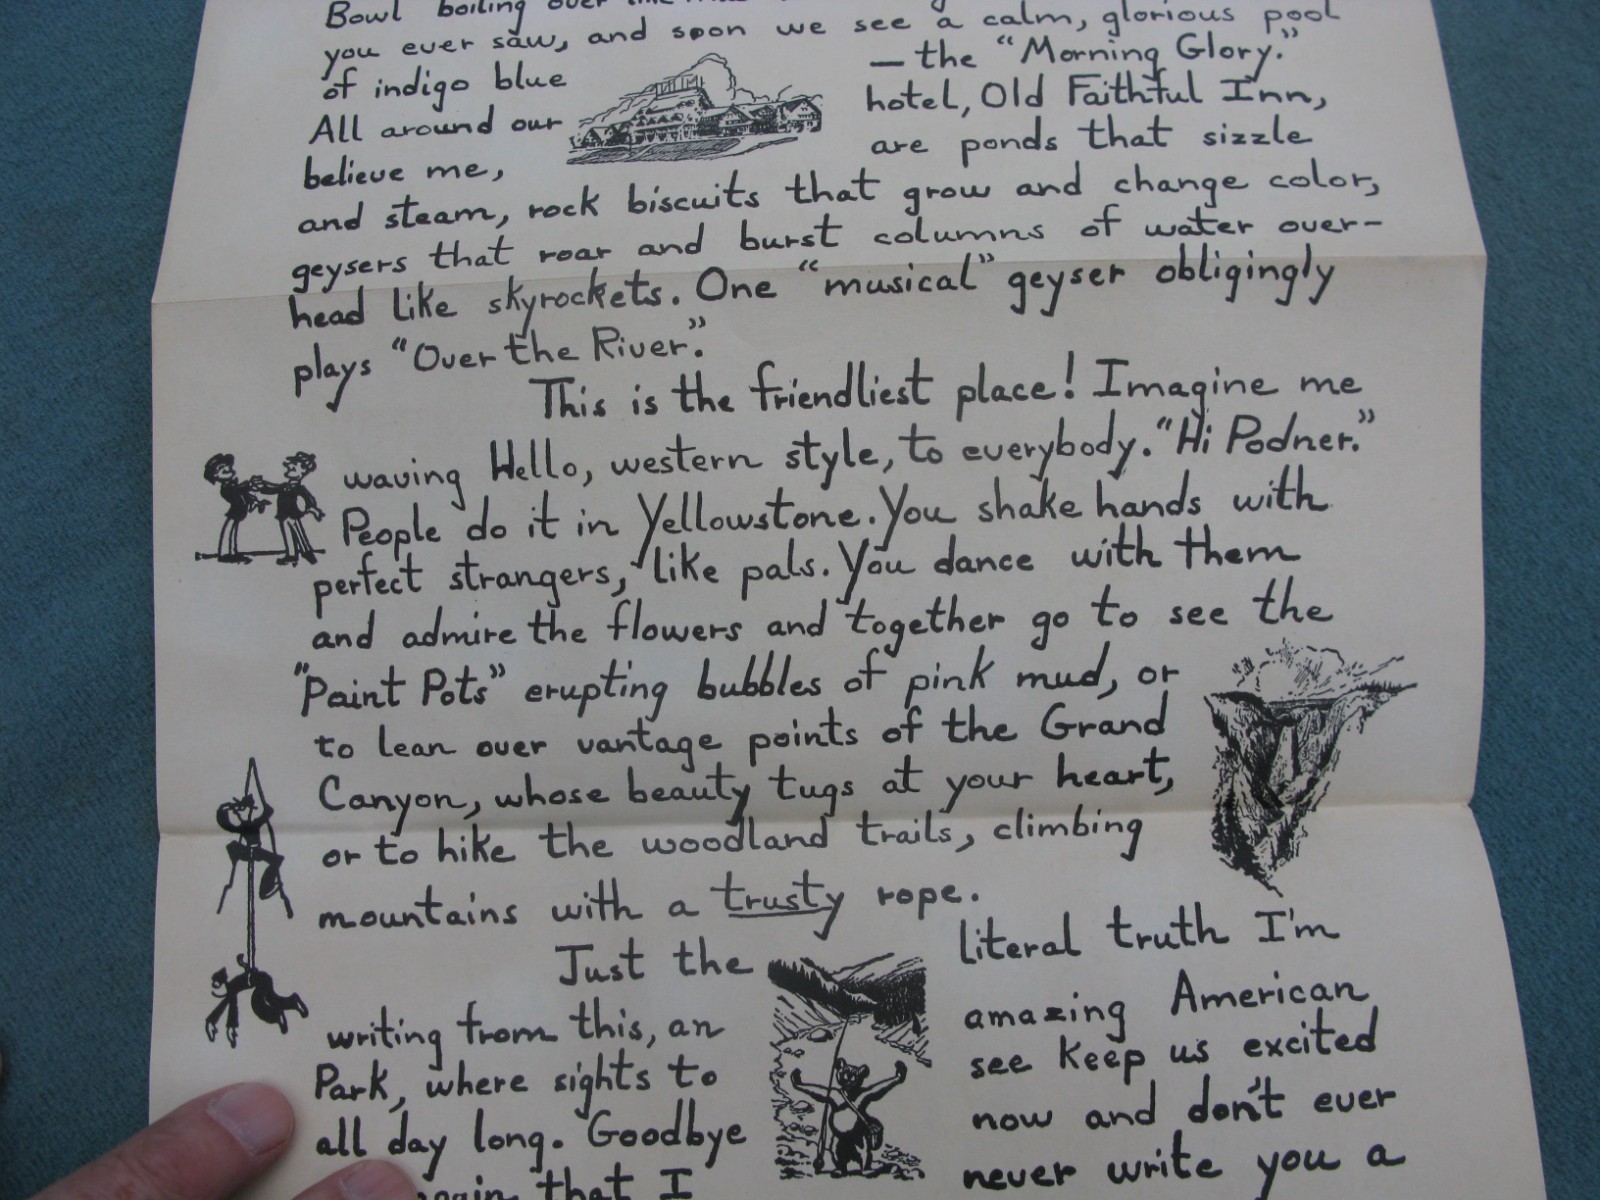 Bowl boiling over
you ever saw, and soon we see a calm, glorious pool
of indigo blue — the "Morning Glory."
All around our hotel, Old Faithful Inn,
believe me, are ponds that sizzle
and steam, rock biscuits that grow and change color,
geysers that roar and burst columns of water over-
head like skyrockets. One "musical" geyser obligingly
plays "Over the River."
This is the friendliest place! Imagine me
waving Hello, western style, to everybody. "Hi Podner."
People do it in Yellowstone. You shake hands with
perfect strangers, like pals. You dance with them
and admire the flowers and together go to see the
"Paint Pots" erupting bubbles of pink mud, or
to lean over vantage points of the Grand
Canyon, whose beauty tugs at your heart,
or to hike the woodland trails, climbing
mountains with a trusty rope.
Just the literal truth I'm
writing from this, an amazing American
Park, where sights to see keep us excited
all day long. Goodbye now and don't ever
that I never write you a